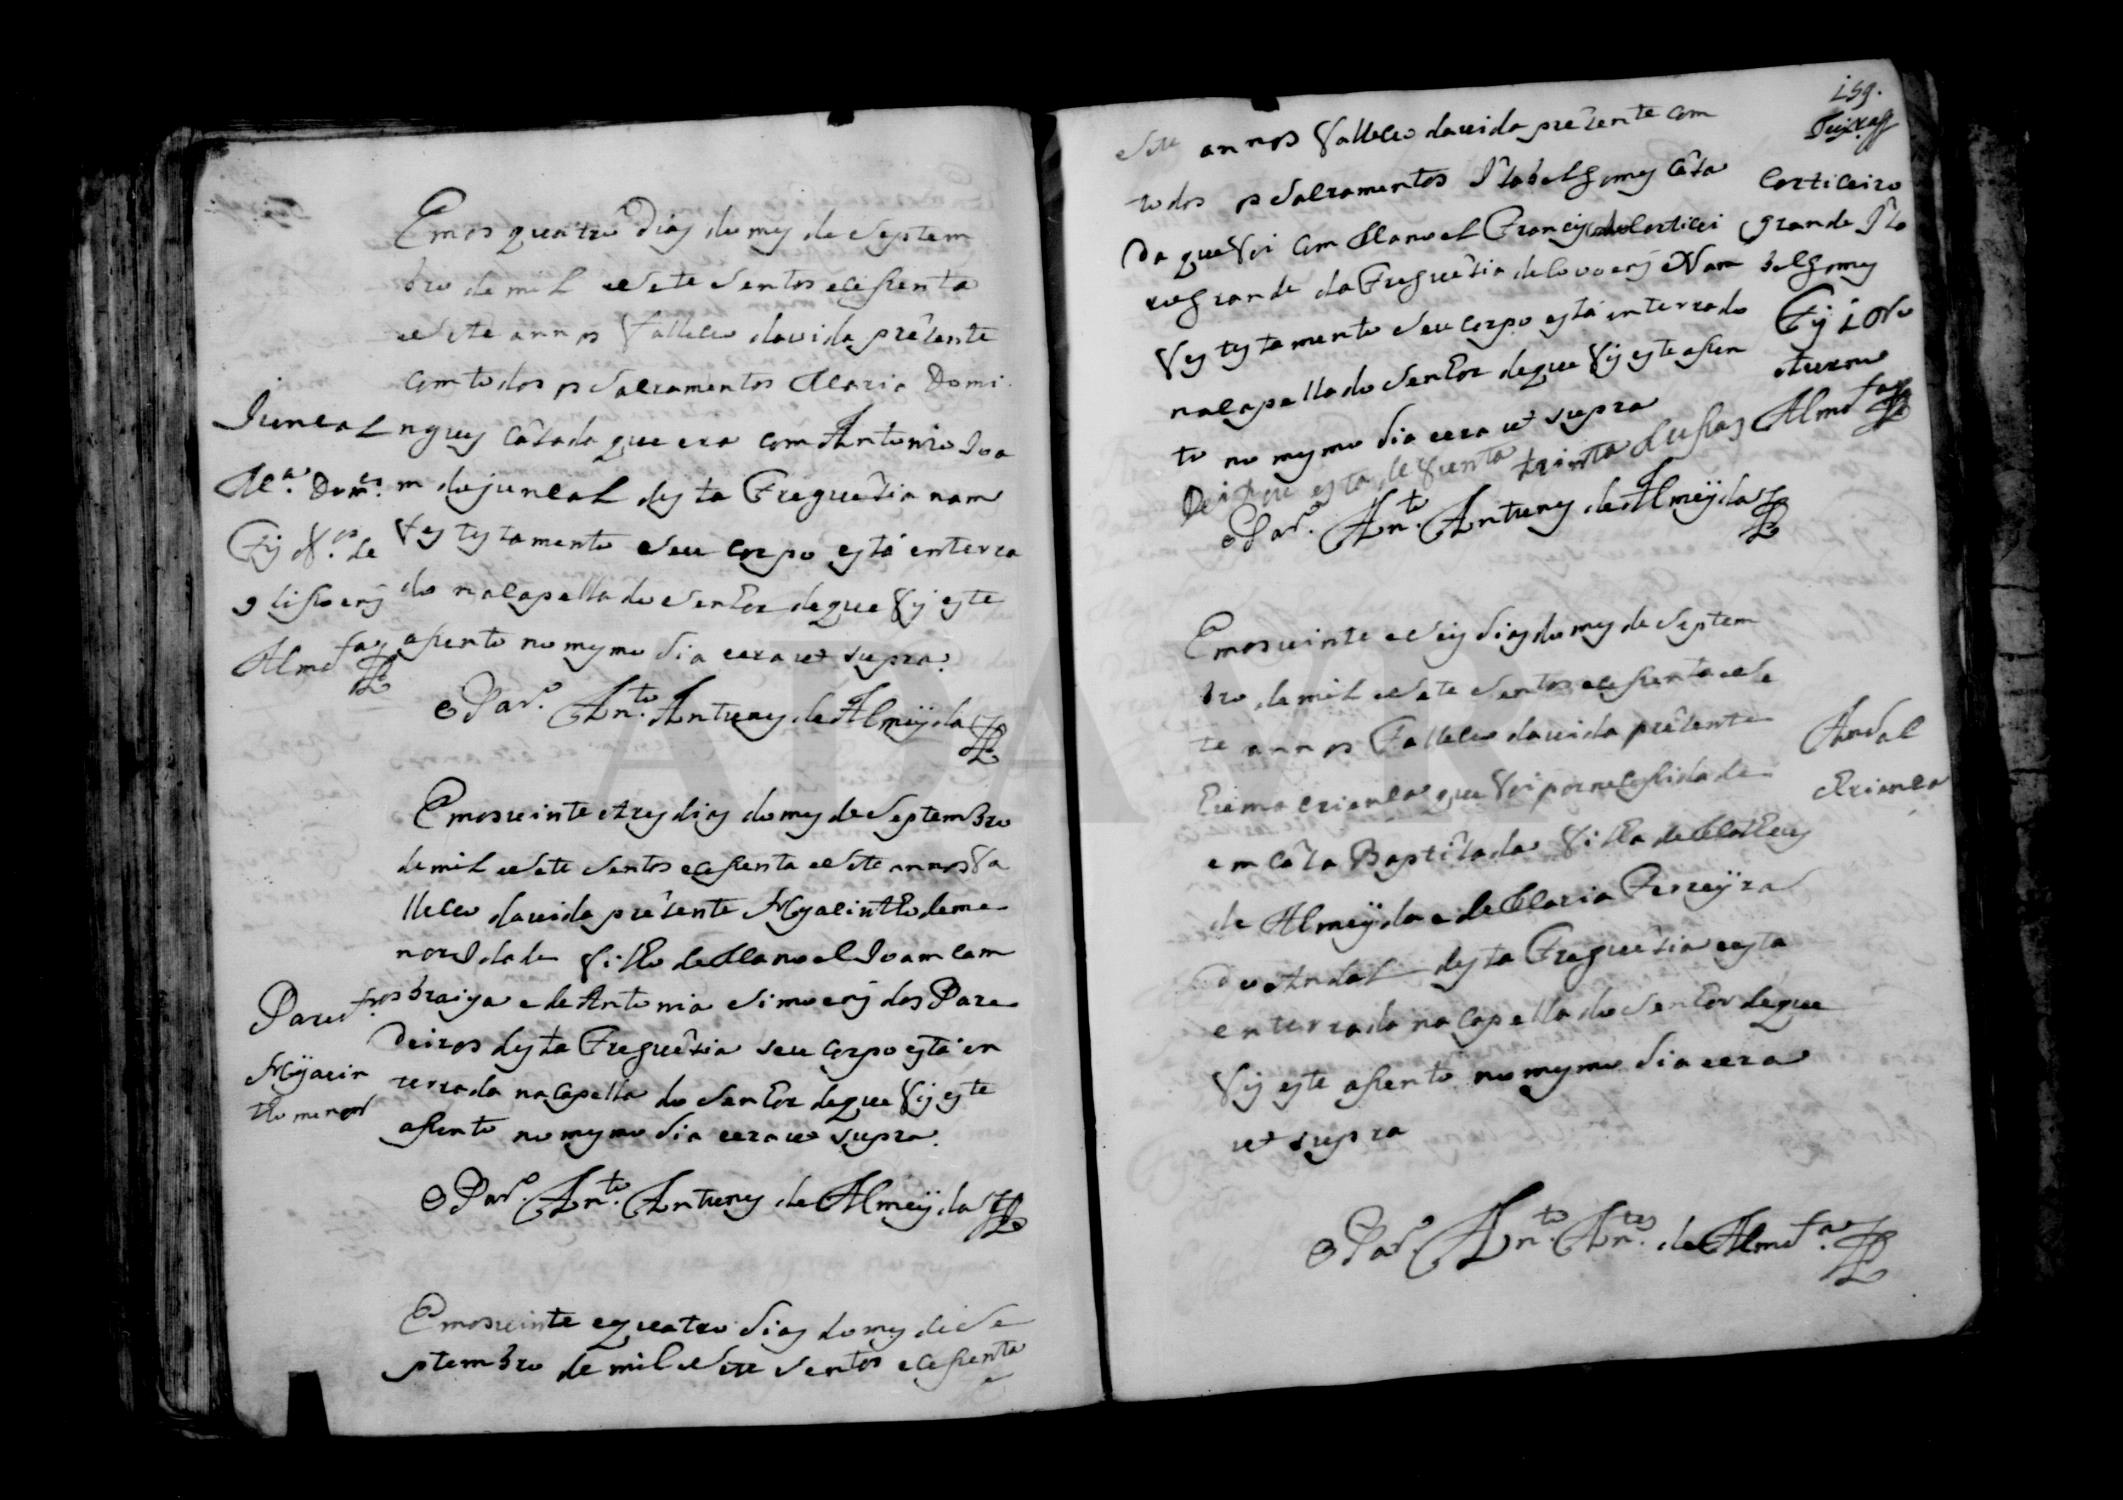 Em os quatro dias do mes de Septem
bro de mil e sete sentos e cesenta
e sete annos falleceo da vida prezente
com todos os sacramentos Maria Domi
ngues cazada que era com Antonio Joa
m do juncal desta Freguezia nam
fes testamento e seu corpo está enterra
do na capella do Senhor de que fis este
asento no mesmo dia e era ut supra.
O Par.º An.to Antunes de Almeyda
Juncal
M.a Dom.es
Fis
Alm.da
Em os vinte e tres dias do mes de Septembro
de mil e sete sentos e cesenta e sete annos fa
lleceo da vida prezente Hyacintho de me
nor Idade filho de Manoel Joam Cam
braiya e de Antonia Simoens dos Pare
deiros desta Freguezia seu corpo está en
terrado na capella do Senhor de que fis este
asento no mesmo dia e era ut supra.
Pared.ros
Hyacin
tho menor
O Par.º An.to Antunes de Almeyda
Em os vinte e quatro dias do mes de Se
ptembro de mil e sete sentos e cesenta
e
159.
sete annos falleceo da vida prezente com
todos os sacramentos Izabel Gomes caza
da que foi com Manoel Francisco do Corticei
ro grande da Freguezia de Covoens e Nam
fes testamento e seu corpo está enterrado
na capella do Senhor de que fis este asen
to no mesmo dia e era ut supra
O Par.º An.to Antunes de Almeyda
Corticeiro
grande Iza
bel Gomes
Fis
Alm.da
Em os vinte e seis dias do mes de Septem
bro de mil e sete sentos e cesenta e se
te annos Falleceo da vida prezente
huma crianca que foi por necesidade
em caza Baptizada filha de Matheus
de Almeyda e de Maria Ferreyra
do Andal desta Freguezia e esta
enterrada na capella do Senhor de que
fis este asento no mesmo dia e era
ut supra
Andal
Crianca
O Par.º An.to An.tes de Alm.da
ADAVR